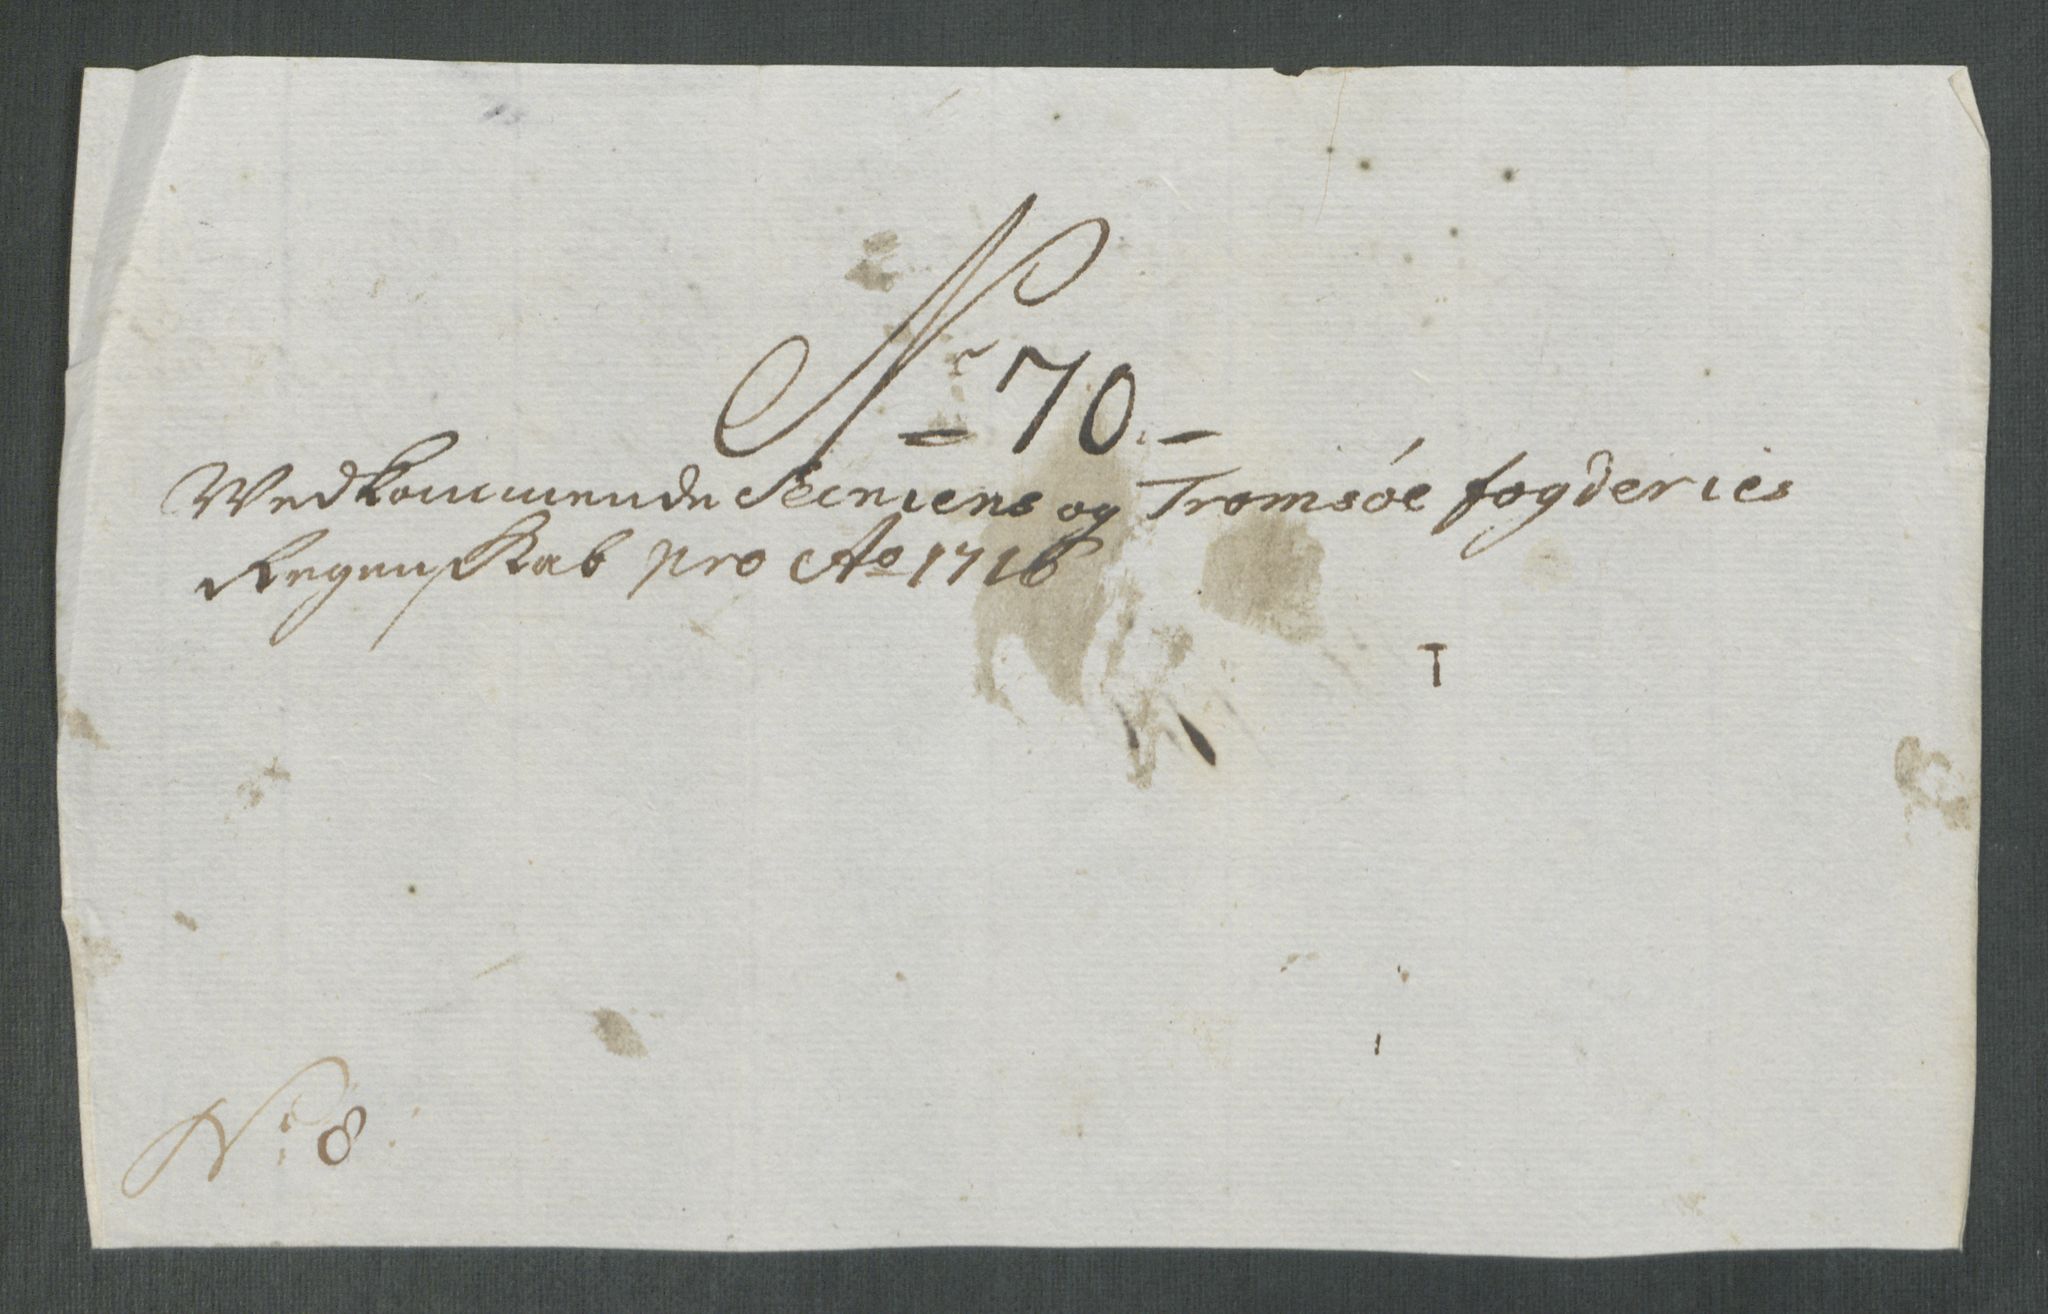 No 70
Wedkommende Secniens og Tromsøe fogderies
Regenskab pro Ao 1716
No 8